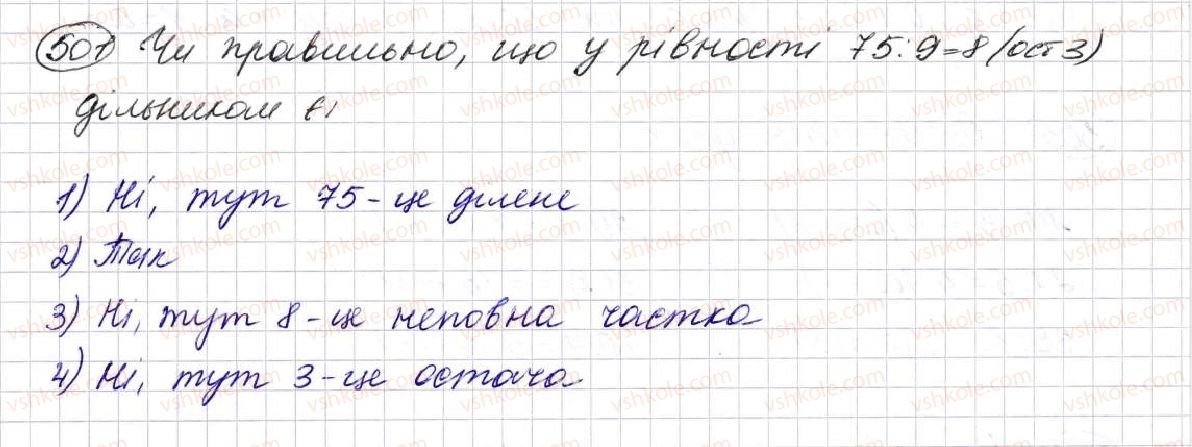 501 Чи правильно, що у рівності 75:9=8 (ост 3)
дільником є:
1) Ні, тут 75 - це ділене
2) Так
3) Ні, тут 8 - це неповна частка
4) Ні, тут 3 - це остача